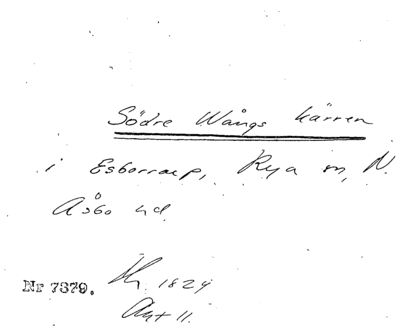 Södre Wångs kärren
i Esborrarp, Rya sn, N.
Åsbo hd
Nr 7379. 1824
Akt 11.